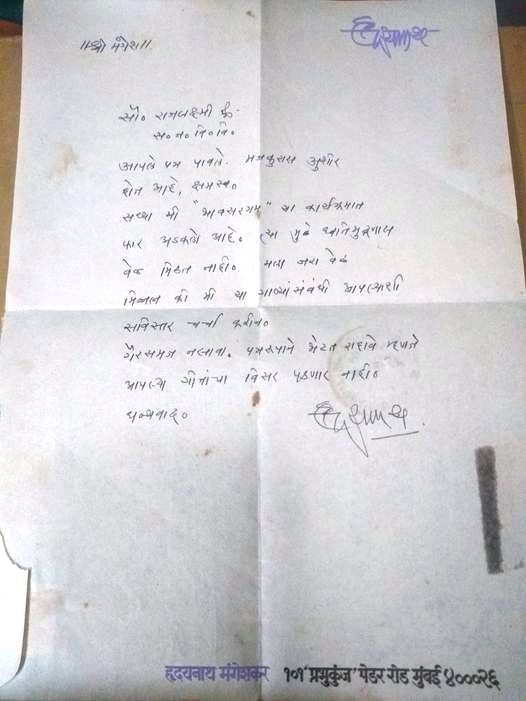 ॥श्री मंगेश॥
हृदयनाथ
सौ० राजलक्ष्मी
स० न० वि० वि०
आपले पत्र पावले. उशीर
होत आहे, क्षमस्व०
सध्या मी "भावसरगम" या कार्यक्रमात
फार अडकलो आहे० त्या मुळे ध्वनिमुद्रणास
वेळ मिळत नाही० मला जरा वेळ
मिळाला की मी या गाण्यांसंबंधी आपल्याशी
सविस्तर चर्चा करीन०
गैरसमज नसावा. पत्ररूपाने भेटत रहावे म्हणजे
आपल्या गीतांचा विसर पडणार नाही०
धन्यवाद०
हृदयनाथ
हृदयनाथ मंगेशकर १०१ 'प्रभुकुंज' पेडर रोड मुंबई ४०००२६